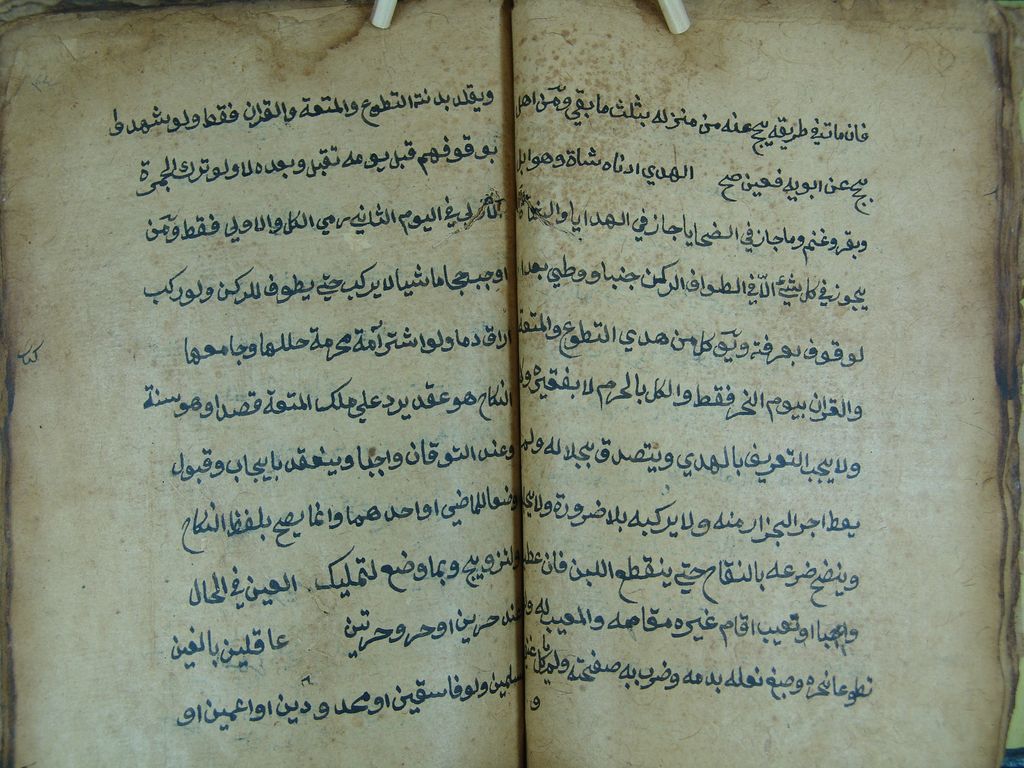 فان مات في طريقه يحج عنه من منزله بثلث ما بقي ومن اهل
بحج عن ابويه فعين صح الهدي ادناه شاة وهو ابل
وبقر وغنم وما جاز في الضحايا جاز في الهدايا والشاة
يجوز في كل شيء الا في الطواف الركن جنبا ووطي بعد
لوقوف بعرفة ويؤكل من هدي التطوع والمتعة
والقران بيوم النحر فقط والكل بالحرم لا بفقيره
ولا يجب التعريف بالهدي ويتصدق بجلاله ولم
يعط اجر الجزار منه ولا يركبه بلا ضرورة ولا يحلبه
وينضح ضرعه بالنقاخ حتي ينقطع اللبن فان عطب
واجبا او تعيب اقام غيره مقامه والمعيب له
تطوعا نحره وصبغ نعله بدمه وضرب به صفحته ولم ياكل غني
و
٣٤
ويقلد بدنة التطوع والمتعة والقران فقط ولو شهدوا
بوقوفهم قبل يومه تقبل وبعده لا ولو ترك الجمرة
الاولي في اليوم الثاني رمي الكل والاولي فقط ومن
اوجب حجا ماشيا لا يركب حتي يطوف للركن ولو ركب
اراق دما ولو اشتر امة محرمة حللها وجامعها
كتاب
النكاح هو عقد يرد علي ملك المتعة قصدا وهو سنة
وعند التوقان واجبا وينعقد بايجاب وقبول
وضعا للماضي او احدهما وانما يصح بلفظ النكاح
والتزويج وبما وضع لتمليك العين في الحال
عند حرين او حر وحرتين عاقلين بالغين
مسلمين ولو فاسقين او محدودين او اعميين او